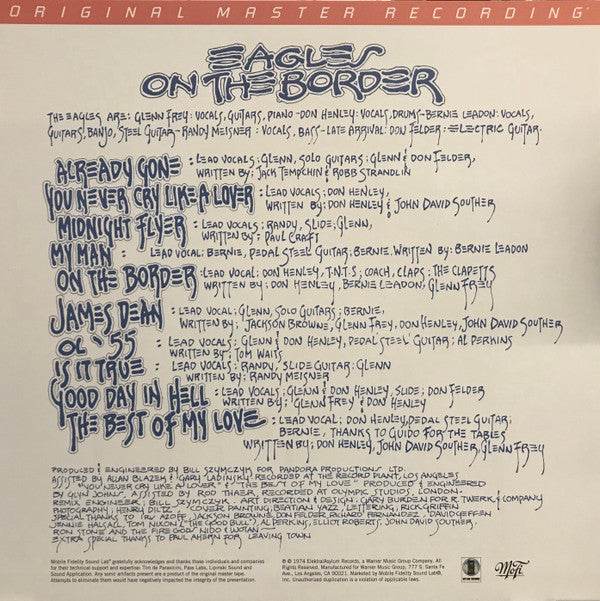 ORIGINAL MASTER RECORDING™
EAGLES
ON THE BORDER
THE EAGLES ARE: GLENN FREY: VOCALS, GUITARS, PIANO - DON HENLEY: VOCALS, DRUMS - BERNIE LEADON: VOCALS,
GUITARS, BANJO, STEEL GUITAR - RANDY MEISNER: VOCALS, BASS - LATE ARRIVAL: DON FELDER: ELECTRIC GUITAR.
ALREADY GONE : LEAD VOCALS; GLENN, SOLO GUITARS; GLENN & DON FELDER,
WRITTEN BY; JACK TEMPCHIN & ROBB STRANDLIN
YOU NEVER CRY LIKE A LOVER : LEAD VOCALS; DON HENLEY,
WRITTEN BY; DON HENLEY & JOHN DAVID SOUTHER
MIDNIGHT FLYER : LEAD VOCALS; RANDY, SLIDE; GLENN,
WRITTEN BY; PAUL CRAFT
MY MAN : LEAD VOCAL: BERNIE, PEDAL STEEL GUITAR; BERNIE, WRITTEN BY: BERNIE LEADON
ON THE BORDER : LEAD VOCAL: DON HENLEY, T.N.T.S; COACH, CLAPS: THE CLAPETTS
WRITTEN BY: DON HENLEY, BERNIE LEADON, GLENN FREY
JAMES DEAN : LEAD VOCAL; GLENN, SOLO GUITARS; BERNIE,
WRITTEN BY; JACKSON BROWNE, GLENN FREY, DON HENLEY, JOHN DAVID SOUTHER
OL '55 : LEAD VOCALS; GLENN & DON HENLEY, PEDAL STEEL GUITAR; AL PERKINS
WRITTEN BY; TOM WAITS
IS IT TRUE : LEAD VOCALS; RANDY, SLIDE GUITAR: GLENN
WRITTEN BY: RANDY MEISNER
GOOD DAY IN HELL : LEAD VOCALS; GLENN & DON HENLEY, SLIDE; DON FELDER
WRITTEN BY; GLENN FREY & DON HENLEY
THE BEST OF MY LOVE : LEAD VOCAL: DON HENLEY, PEDAL STEEL GUITAR;
BERNIE, THANKS TO GUIDO FOR THE TABLES
WRITTEN BY: DON HENLEY, JOHN DAVID SOUTHER, GLENN FREY
PRODUCED & ENGINEERED BY BILL SZYMCZYK FOR PANDORA PRODUCTIONS LTD.
ASSISTED BY ALLAN BLAZEK & GARY LADINSKY RECORDED AT THE RECORD PLANT, LOS ANGELES
"YOU NEVER CRY LIKE A LOVER" & "THE BEST OF MY LOVE" PRODUCED & ENGINEERED
BY GLYN JOHNS, ASSISTED BY ROD THAER RECORDED AT OLYMPIC STUDIOS, LONDON.
REMIX ENGINEER; BILL SZYMCZYK. ART DIRECTION & DESIGN: GARY BURDEN FOR R. TWERK & COMPANY
PHOTOGRAPHY: HENRY DILTZ. COVER PAINTING, BEATIAN YAZZ, LETTERING, RICK GRIFFIN
SPECIAL THANKS TO IRV AZOFF, JACKSON BROWNE, DON FELDER, RICHARD FERNANDEZ, DAVID GEFFEN
JENNIE HALSALL, TOM NIXON ("THE GOOD BULL"), AL PERKINS, ELLIOT ROBERTS, JOHN DAVID SOUTHER.
RON STONE AND THE FIRE GOD NIDO & WOMAN
EXTRA SPECIAL THANKS TO PAUL AHERN FOR LEAVING TOWN
Mobile Fidelity Sound Lab® gratefully acknowledges and thanks these individuals and companies
for their technical support and assistance: Tim de Paravicini, Pass Labs, Lipinski Sound and
Sound Application. Any sonic artifacts present are a product of the original master tape.
Attempts to eliminate them would have negatively impacted the integrity of the presentation.
℗ © 1974 Elektra/Asylum Records, a Warner Music Group Company. All rights
reserved. Manufactured for Warner Music Group, 777 S. Santa Fe
Ave., Los Angeles, CA 90021. Marketed by Mobile Fidelity Sound Lab®,
Inc. Unauthorized duplication is a violation of applicable laws.
ASYLUM RECORDS
MoFi